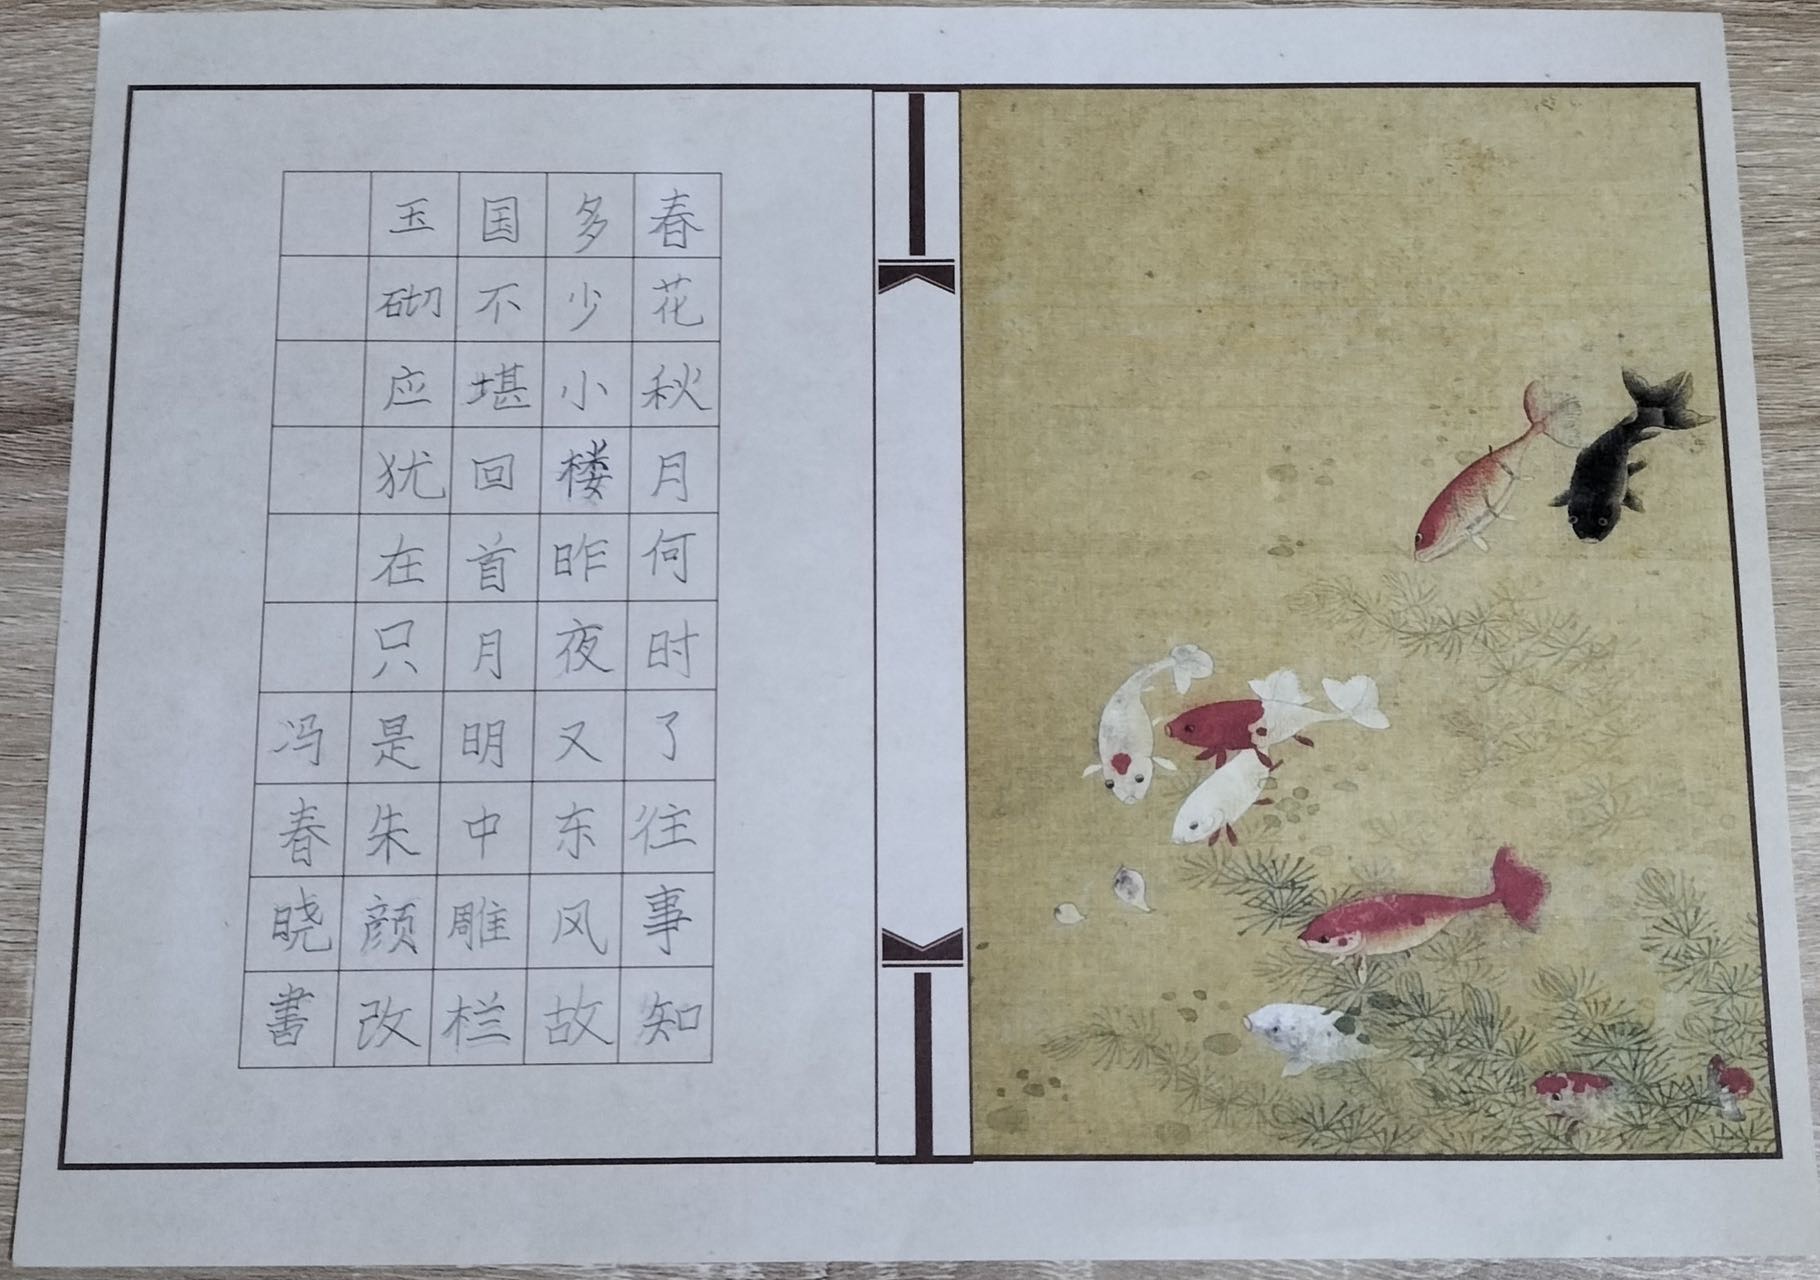 春花秋月何时了往事知
多少小楼昨夜又东风故
国不堪回首月明中雕栏
玉砌应犹在只是朱颜改
冯春晓書